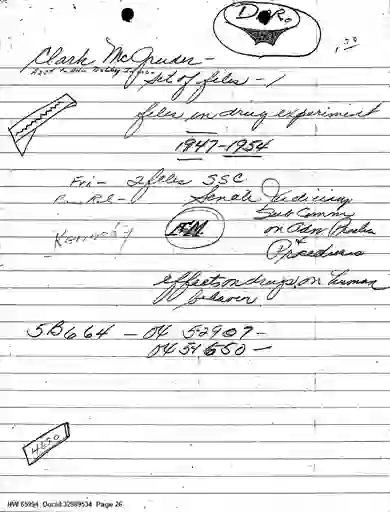 DoRo
.50
Clark McGruder -
Set of files - 1
files in drug experiment
1947-1954
Fri - 2 files SSC
Senate Judiciary
Sub Comm
on Adm
Procedures
KENNEDY
effects on drugs on human
behavior
5B664 - 04 52907 -
04 54 550 -
4E20
HW 65994 DocId:32989534 Page 26